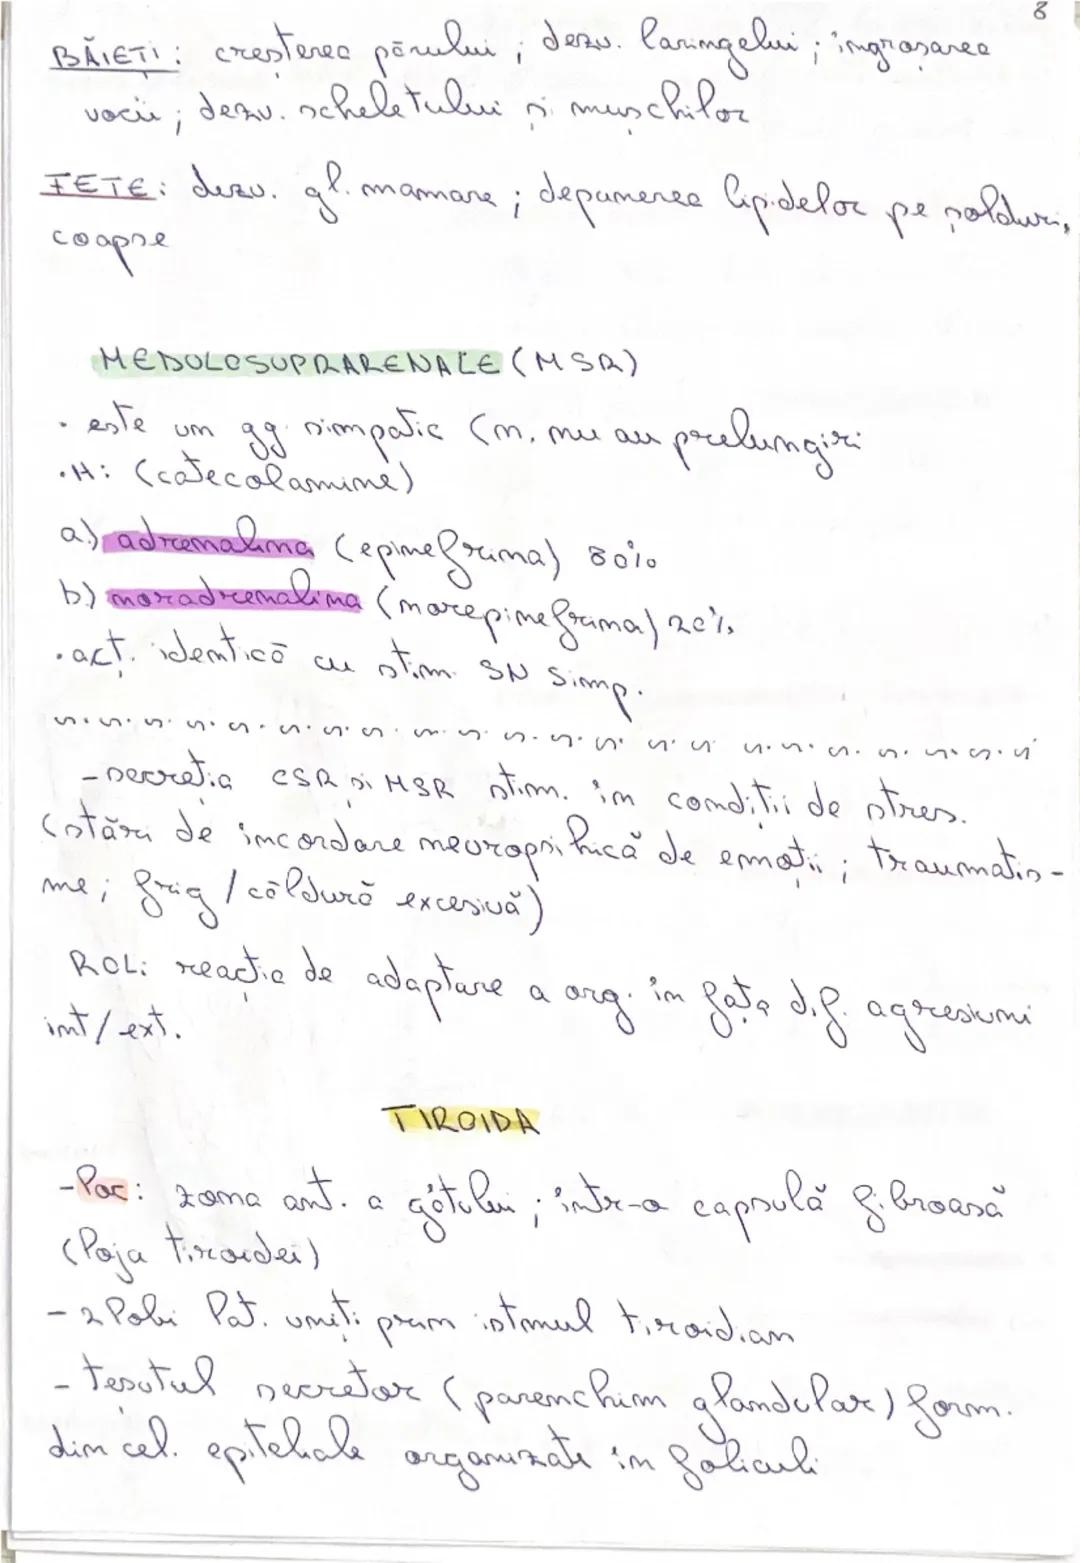 8
BĂIEȚI: creșterea părului; dezv. laringelui; îngroșarea
vocii; dezv. scheletului și mușchilor
FETE: dezv. gl. mamare; depunerea lipidelor pe șolduri,
coapse
MEDULOSUPRARENALE (MSR)
• este un gg. simpatic (n. nu au prelungiri
• H: (catecolamine)
a.) adrenalina (epinefrina) 80%
b.) noradrenalina (norepinefrina) 20%
• acț. identică cu stim. SN simp.
- secreția CSR și MSR stim. în condiții de stres.
(stări de încordare neuropsihică de emoții; traumatis-
me; frig / căldură excesivă)
ROL: reacția de adaptare a org. în fața dif. agresiuni
int/ext.
TIROIDA
- loc: zona ant. a gâtului; într-o capsulă fibroasă
(loja tiroidei)
- 2 lobi lat. uniți prin istmul tiroidian
- țesutul secretor (parenchim glandular) form.
din cel. epiteliale organizate în foliculi